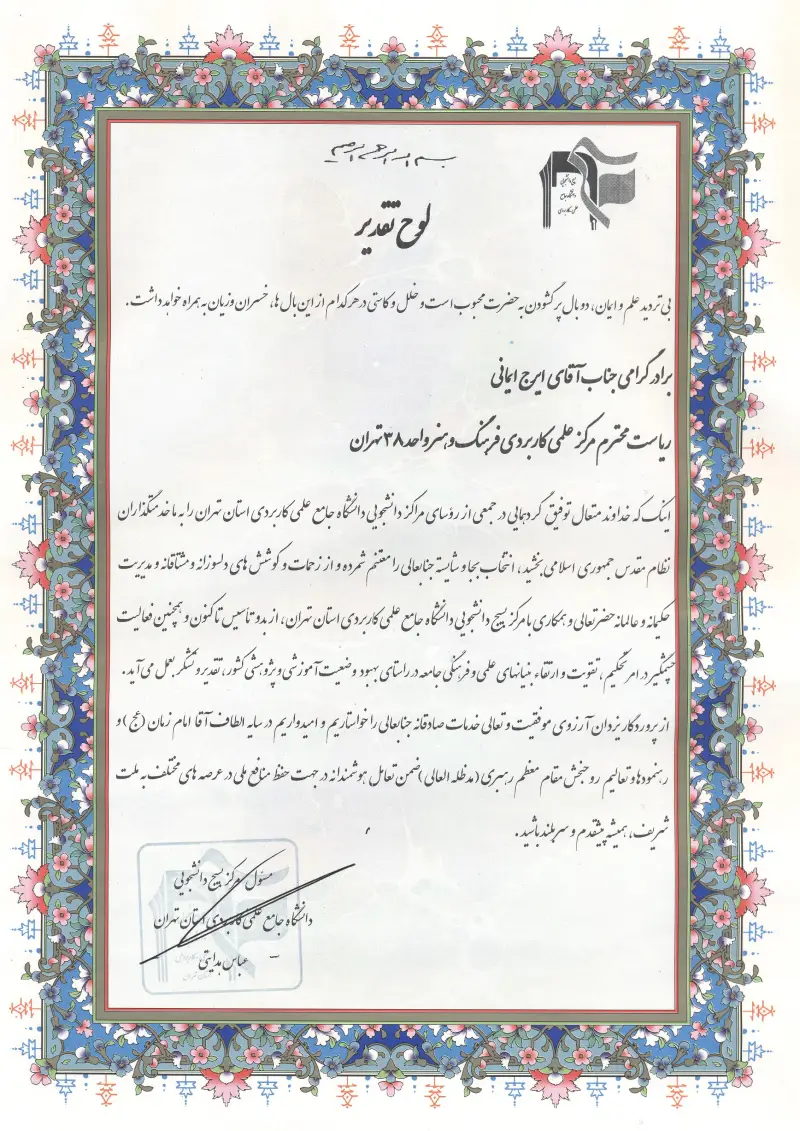 بسم الله الرحمن الرحیم
بسیج دانشجویی
دانشگاه جامع
علمی کاربردی
لوح تقدیر
بی تردید علم و ایمان، دو بال پر گشودن به حضرت محبوب است و خلل و کاستی در هر کدام از این بال ها، خسران و زیان به همراه خواهد داشت.
برادر گرامی جناب آقای ایرج ایمانی
ریاست محترم مرکز علمی کاربردی فرهنگ و هنر واحد ۳۸ تهران
اینک که خداوند متعال توفیق گردهمایی در جمعی از رؤسای مراکز دانشجویی دانشگاه جامع علمی کاربردی استان تهران را به ما خدمتگذاران
نظام مقدس جمهوری اسلامی بخشید، انتخاب بجا و شایسته جنابعالی را مغتنم شمرده و از زحمات و کوشش های دلسوزانه و مشتاقانه و مدیریت
حکیمانه و عالمانه حضرتعالی و همکاری با مرکز بسیج دانشجویی دانشگاه جامع علمی کاربردی استان تهران، از بدو تأسیس تاکنون و همچنین فعالیت
چشمگیر در امر تحکیم، تقویت و ارتقاء بنیانهای علمی و فرهنگی جامعه در راستای بهبود وضعیت آموزشی و پژوهشی کشور، تقدیر و تشکر بعمل می آید.
از پروردگار یزدان آرزوی موفقیت و تعالی خدمات صادقانه جنابعالی را خواستاریم و امیدواریم در سایه الطاف آقا امام زمان (عج) و
رهنمودها و تعالیم روحبخش مقام معظم رهبری (مدظله العالی) ضمن تعامل هوشمندانه در جهت حفظ منافع ملی در عرصه های مختلف به ملت
شریف، همیشه پیشقدم و سربلند باشید.
مسئول مرکز بسیج دانشجویی
دانشگاه جامع علمی کاربردی استان تهران
عباس هدایتی